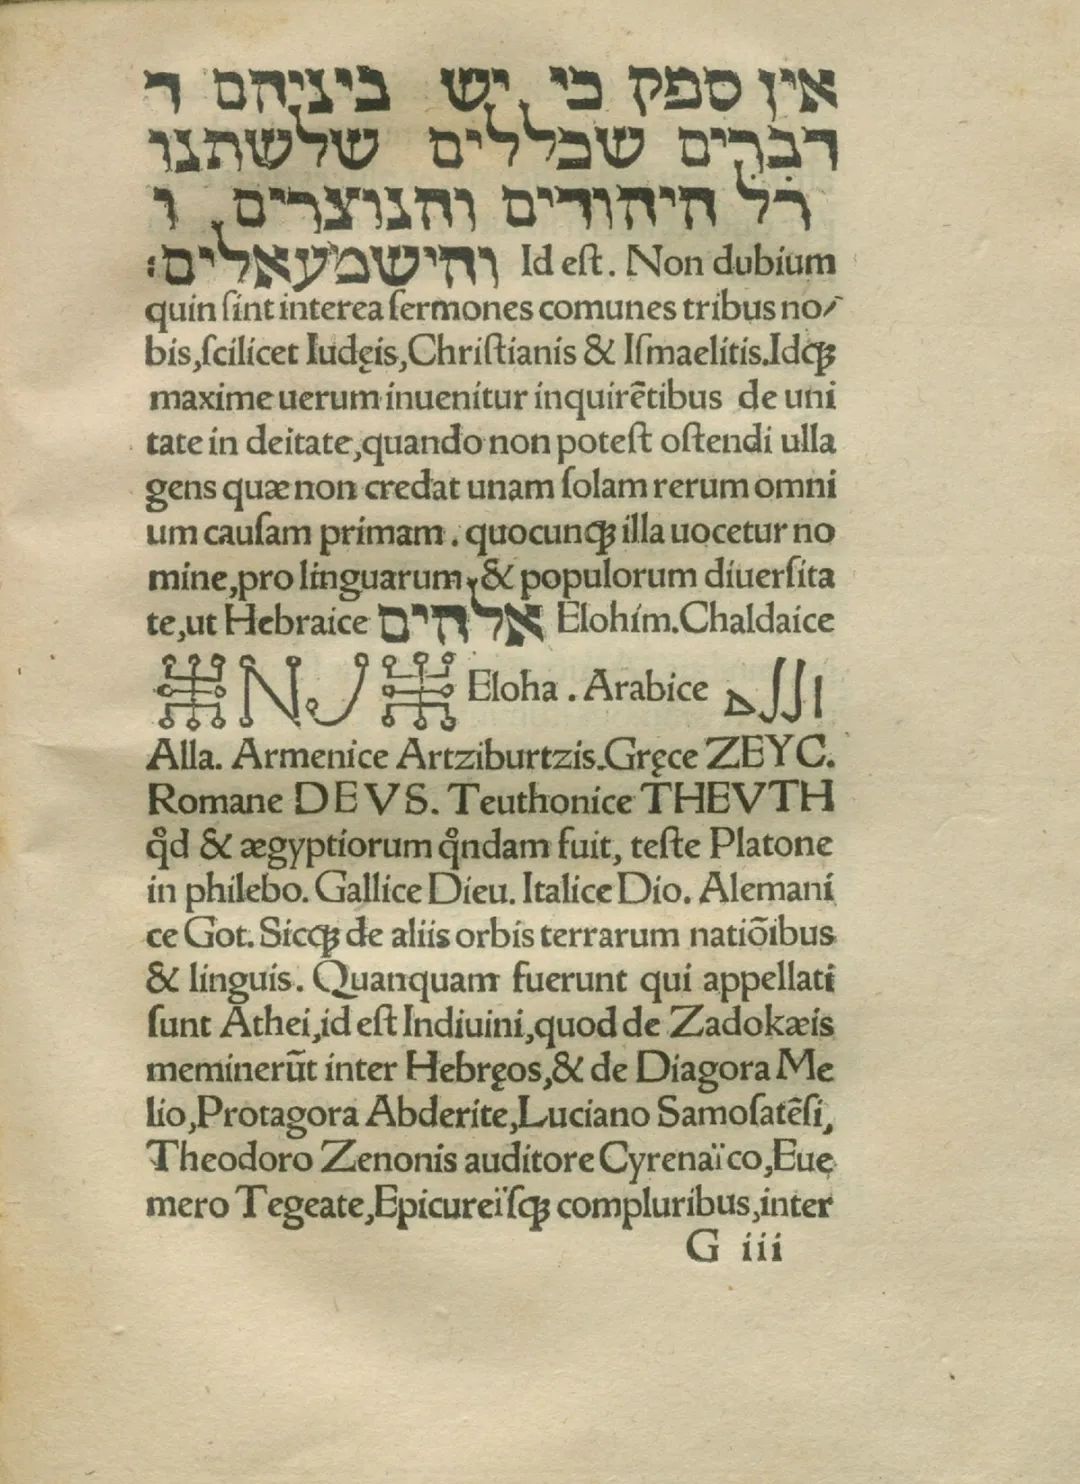 אין ספק כי יש ביניהם ד
דברים שכללים שלשתנו
רל היהודים והנוצרים ו
והישמעאלים: Id eſt. Non dubium
quin ſint interea ſermones comunes tribus no/
bis,ſcilicet Iudęis,Chriſtianis & Iſmaelitis.Idqꝫ
maxime uerum inuenitur inquirẽtibus de uni
tate in deitate,quando non poteſt oſtendi ulla
gens quæ non credat unam ſolam rerum omni
um cauſam primam. quocunqꝫ illa uocetur no
mine,pro linguarum,& populorum diuerſita
te,ut Hebraice אלהים Elohim.Chaldaice
Eloha. Arabice اللہ
Alla. Armenice Artziburtzis.Gręce ZEYC.
Romane DEVS. Teuthonice THEVTH
qd & ægyptiorum qndam fuit, teſte Platone
in philebo. Gallice Dieu. Italice Dio. Alemani
ce Got. Sicqꝫ de aliis orbis terrarum natiõibus
& linguis. Quanquam fuerunt qui appellati
ſunt Athei,id eſt Indiuini,quod de Zadokæis
meminerũt inter Hebręos,& de Diagora Me
lio,Protagora Abderite,Luciano Samoſatẽſi,
Theodoro Zenonis auditore Cyrenaïco,Eue
mero Tegeate,Epicureïſqꝫ compluribus,inter
G iii